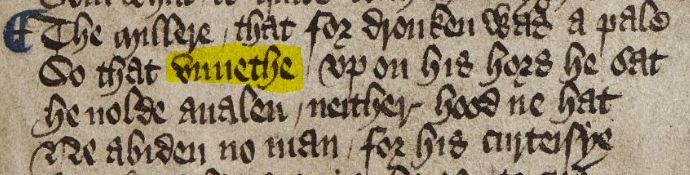 The Millere / that for dronken was a pale
So that vnnethe / vp on his hors he sat
he nolde aualen / neither hood ne hat
Ne abiden no man / for his curteisye